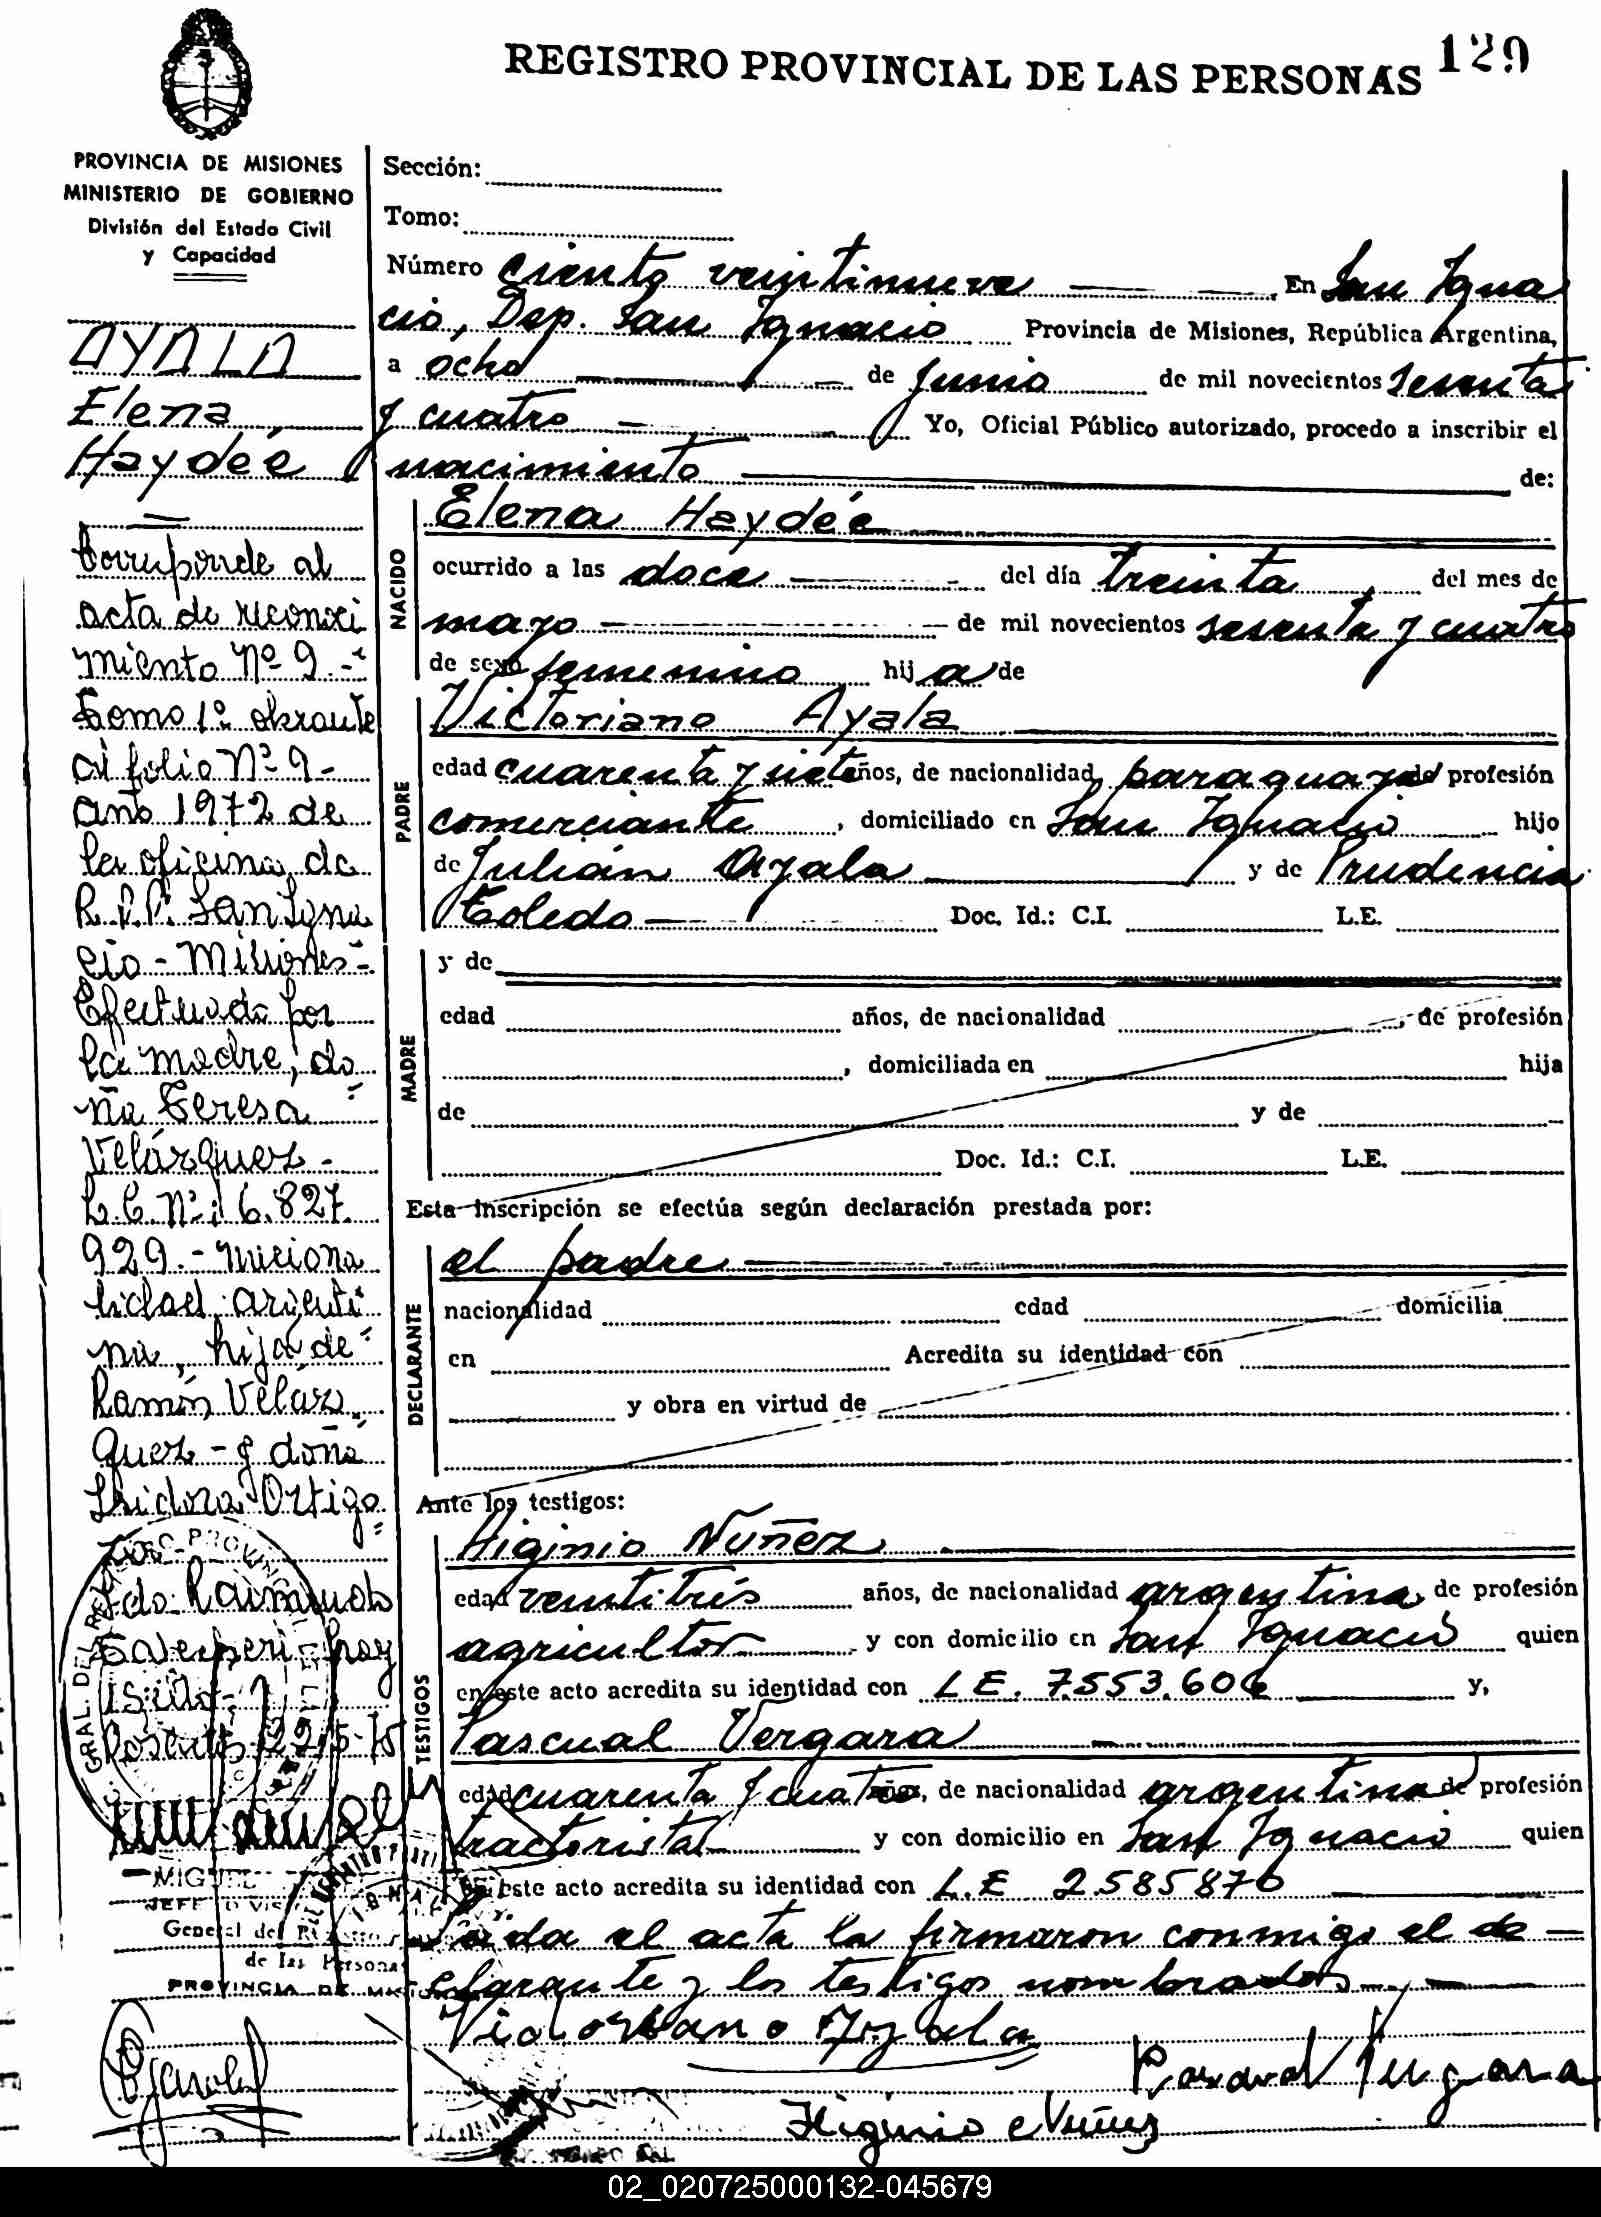 REGISTRO PROVINCIAL DE LAS PERSONAS 129
PROVINCIA DE MISIONES
MINISTERIO DE GOBIERNO
División del Estado Civil
y Capacidad
AYALA
Elena
Haydée
Corresponde al
acta de reconoci
miento Nº 9.-
Tomo 1º obrante
al folio Nº 9-
año 1972 de
la oficina de
R.P.P. San Igna
cio - Misiones-
Efectuado por
la madre, do
ña Teresa
Velázquez -
L.C. Nº: 6.827.
929.- naciona
lidad argenti
na, hija de
Ramón Veláz
quez - y doña
Isidora Ortigo
MIGUEL
JEFE
General del Registro
de las Personas
PROVINCIA DE MISIONES
Sección:
Tomo:
Número ciento veintinueve En San Igna
cio, Dep. San Ignacio Provincia de Misiones, República Argentina,
a ocho de junio de mil novecientos sesenta
y cuatro Yo, Oficial Público autorizado, procedo a inscribir el
nacimiento de:
NACIDO
Elena Haydée
ocurrido a las doce del día treinta del mes de
mayo de mil novecientos sesenta y cuatro
de sexo femenino hij a de
PADRE
Victoriano Ayala
edad cuarenta y siete años, de nacionalidad paraguaya de profesión
comerciante, domiciliado en San Ignacio hijo
de Julián Ayala y de Prudencia
Toledo Doc. Id.: C.I. L.E.
MADRE
y de
edad años, de nacionalidad , de profesión
, domiciliada en hija
de y de
Doc. Id.: C.I. L.E.
Esta inscripción se efectúa según declaración prestada por:
DECLARANTE
el padre
nacionalidad edad domicilia
en Acredita su identidad con
y obra en virtud de
Ante los testigos:
TESTIGOS
Higinio Nuñez
edad veintitrés años, de nacionalidad argentina de profesión
agricultor y con domicilio en San Ignacio quien
en este acto acredita su identidad con L E. 7.553.606 y,
Pascual Vergara
edad cuarenta y cuatro años, de nacionalidad argentina de profesión
tractorista y con domicilio en San Ignacio quien
en este acto acredita su identidad con L.E 2585876
Leída el acta la firmaron conmigo el de
clarante y los testigos nombrados
Victoriano Ayala
Pascual Vergara
Higinio Nuñez
02_020725000132-045679